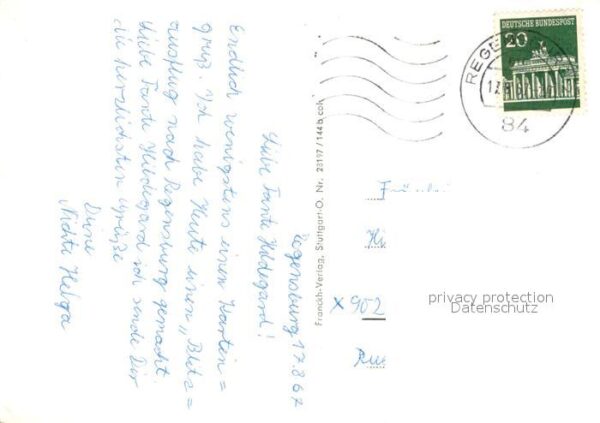 Regensburg 17.8.67
Liebe Tante Hildegard!
Endlich wenigstens einen Karten=
gruß. Ich habe Heute einen „Blitz=
ausflug nach Regensburg gemacht.
Liebe Tante Hildegard ich sende Dir
die herzlichsten Grüße
Deine
Nichte Helga
Franckh-Verlag, Stuttgart-O. Nr. 23197/144b coh
DEUTSCHE BUNDESPOST
20
84
X 902
privacy protection
Datenschutz